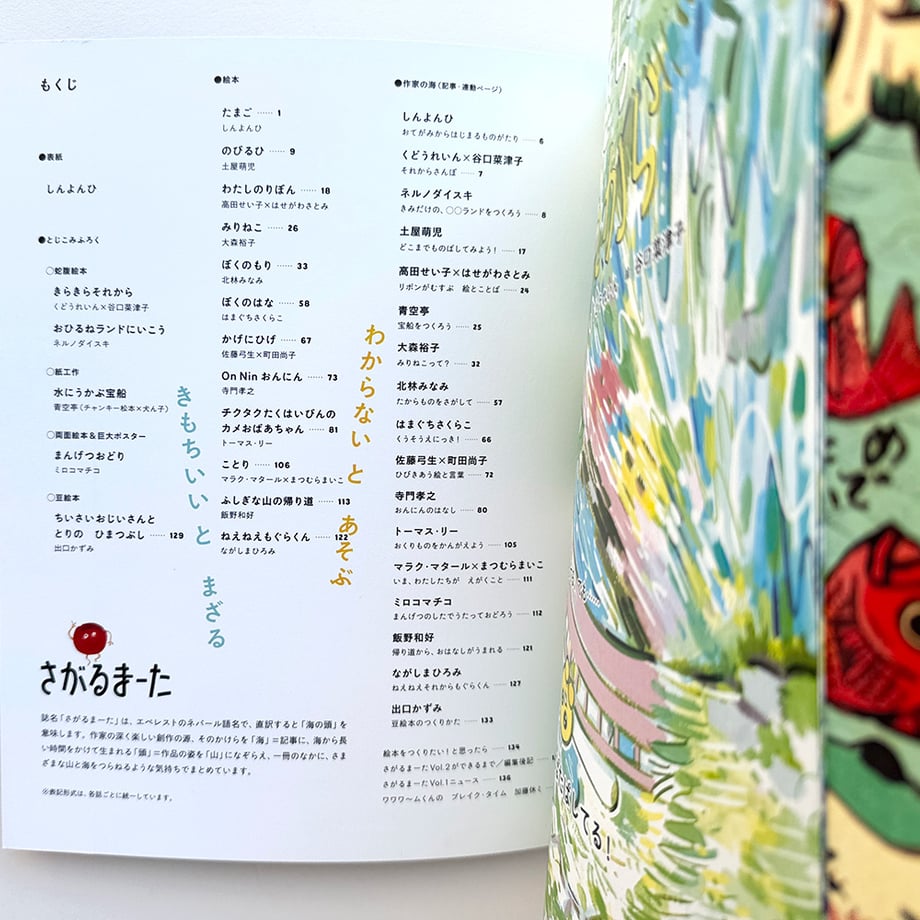 もくじ
●表紙
しんよんひ
●とじこみふろく
○蛇腹絵本
きらきらそれから
くどうれいん×谷口菜津子
おひるねランドにいこう
ネルノダイスキ
○紙工作
水にうかぶ宝船
青空亭(チャンキー松本×犬ん子)
○両面絵本&巨大ポスター
まんげつおどり
ミロコマチコ
○豆絵本
ちいさいおじいさんと
とりの ひまつぶし …… 129
出口かずみ
●絵本
たまご …… 1
しんよんひ
のびるひ …… 9
土屋萌児
わたしのりぼん …… 18
高田せい子×はせがわさとみ
みりねこ …… 26
大森裕子
ぼくのもり …… 33
北林みなみ
ぼくのはな …… 58
はまぐちさくらこ
かげにひげ …… 67
佐藤弓生×町田尚子
On Nin おんにん …… 73
寺門孝之
チクタクたくはいびんの
カメおばあちゃん …… 81
トーマス・リー
ことり …… 106
マラク・マタール×まつむらまいこ
ふしぎな山の帰り道 …… 113
飯野和好
ねえねえもぐらくん …… 122
ながしまひろみ
●作家の海(記事・連動ページ)
しんよんひ
おてがみからはじまるものがたり …… 6
くどうれいん×谷口菜津子
それからさんぽ …… 7
ネルノダイスキ
きみだけの、○○ランドをつくろう …… 8
土屋萌児
どこまでものばしてみよう! …… 17
高田せい子×はせがわさとみ
リボンがむすぶ 絵とことば …… 24
青空亭
宝船をつくろう …… 25
大森裕子
みりねこって? …… 32
北林みなみ
たからものをさがして …… 57
はまぐちさくらこ
くうそうえにっき! …… 66
佐藤弓生×町田尚子
ひびきあう絵と言葉 …… 72
寺門孝之
おんにんのはなし …… 80
トーマス・リー
おくりものをかんがえよう …… 105
マラク・マタール×まつむらまいこ
いま、わたしたちが えがくこと …… 111
ミロコマチコ
まんげつのしたでうたっておどろう …… 112
飯野和好
帰り道から、おはなしがうまれる …… 121
ながしまひろみ
ねえねえそれからもぐらくん …… 127
出口かずみ
豆絵本のつくりかた …… 133
絵本をつくりたい!と思ったら …… 134
さがるまーたVol.2ができるまで/編集後記 ……
さがるまーたVol.1ニュース …… 136
ワワワ〜ムくんの ブレイク・タイム 加藤休ミ
わからないと あそぶ
きもちいいと まざる
さがるまーた
誌名「さがるまーた」は、エベレストのネパール語名で、直訳すると「海の頭」を
意味します。作家の深く楽しい創作の源、そのかけらを「海」=記事に、海から長
い時間をかけて生まれる「頭」=作品の姿を「山」になぞらえ、一冊のなかに、さま
ざまな山と海をつらねるような気持ちでまとめています。
※表記形式は、各話ごとに統一しています。
谷口菜津子
ばしてる!